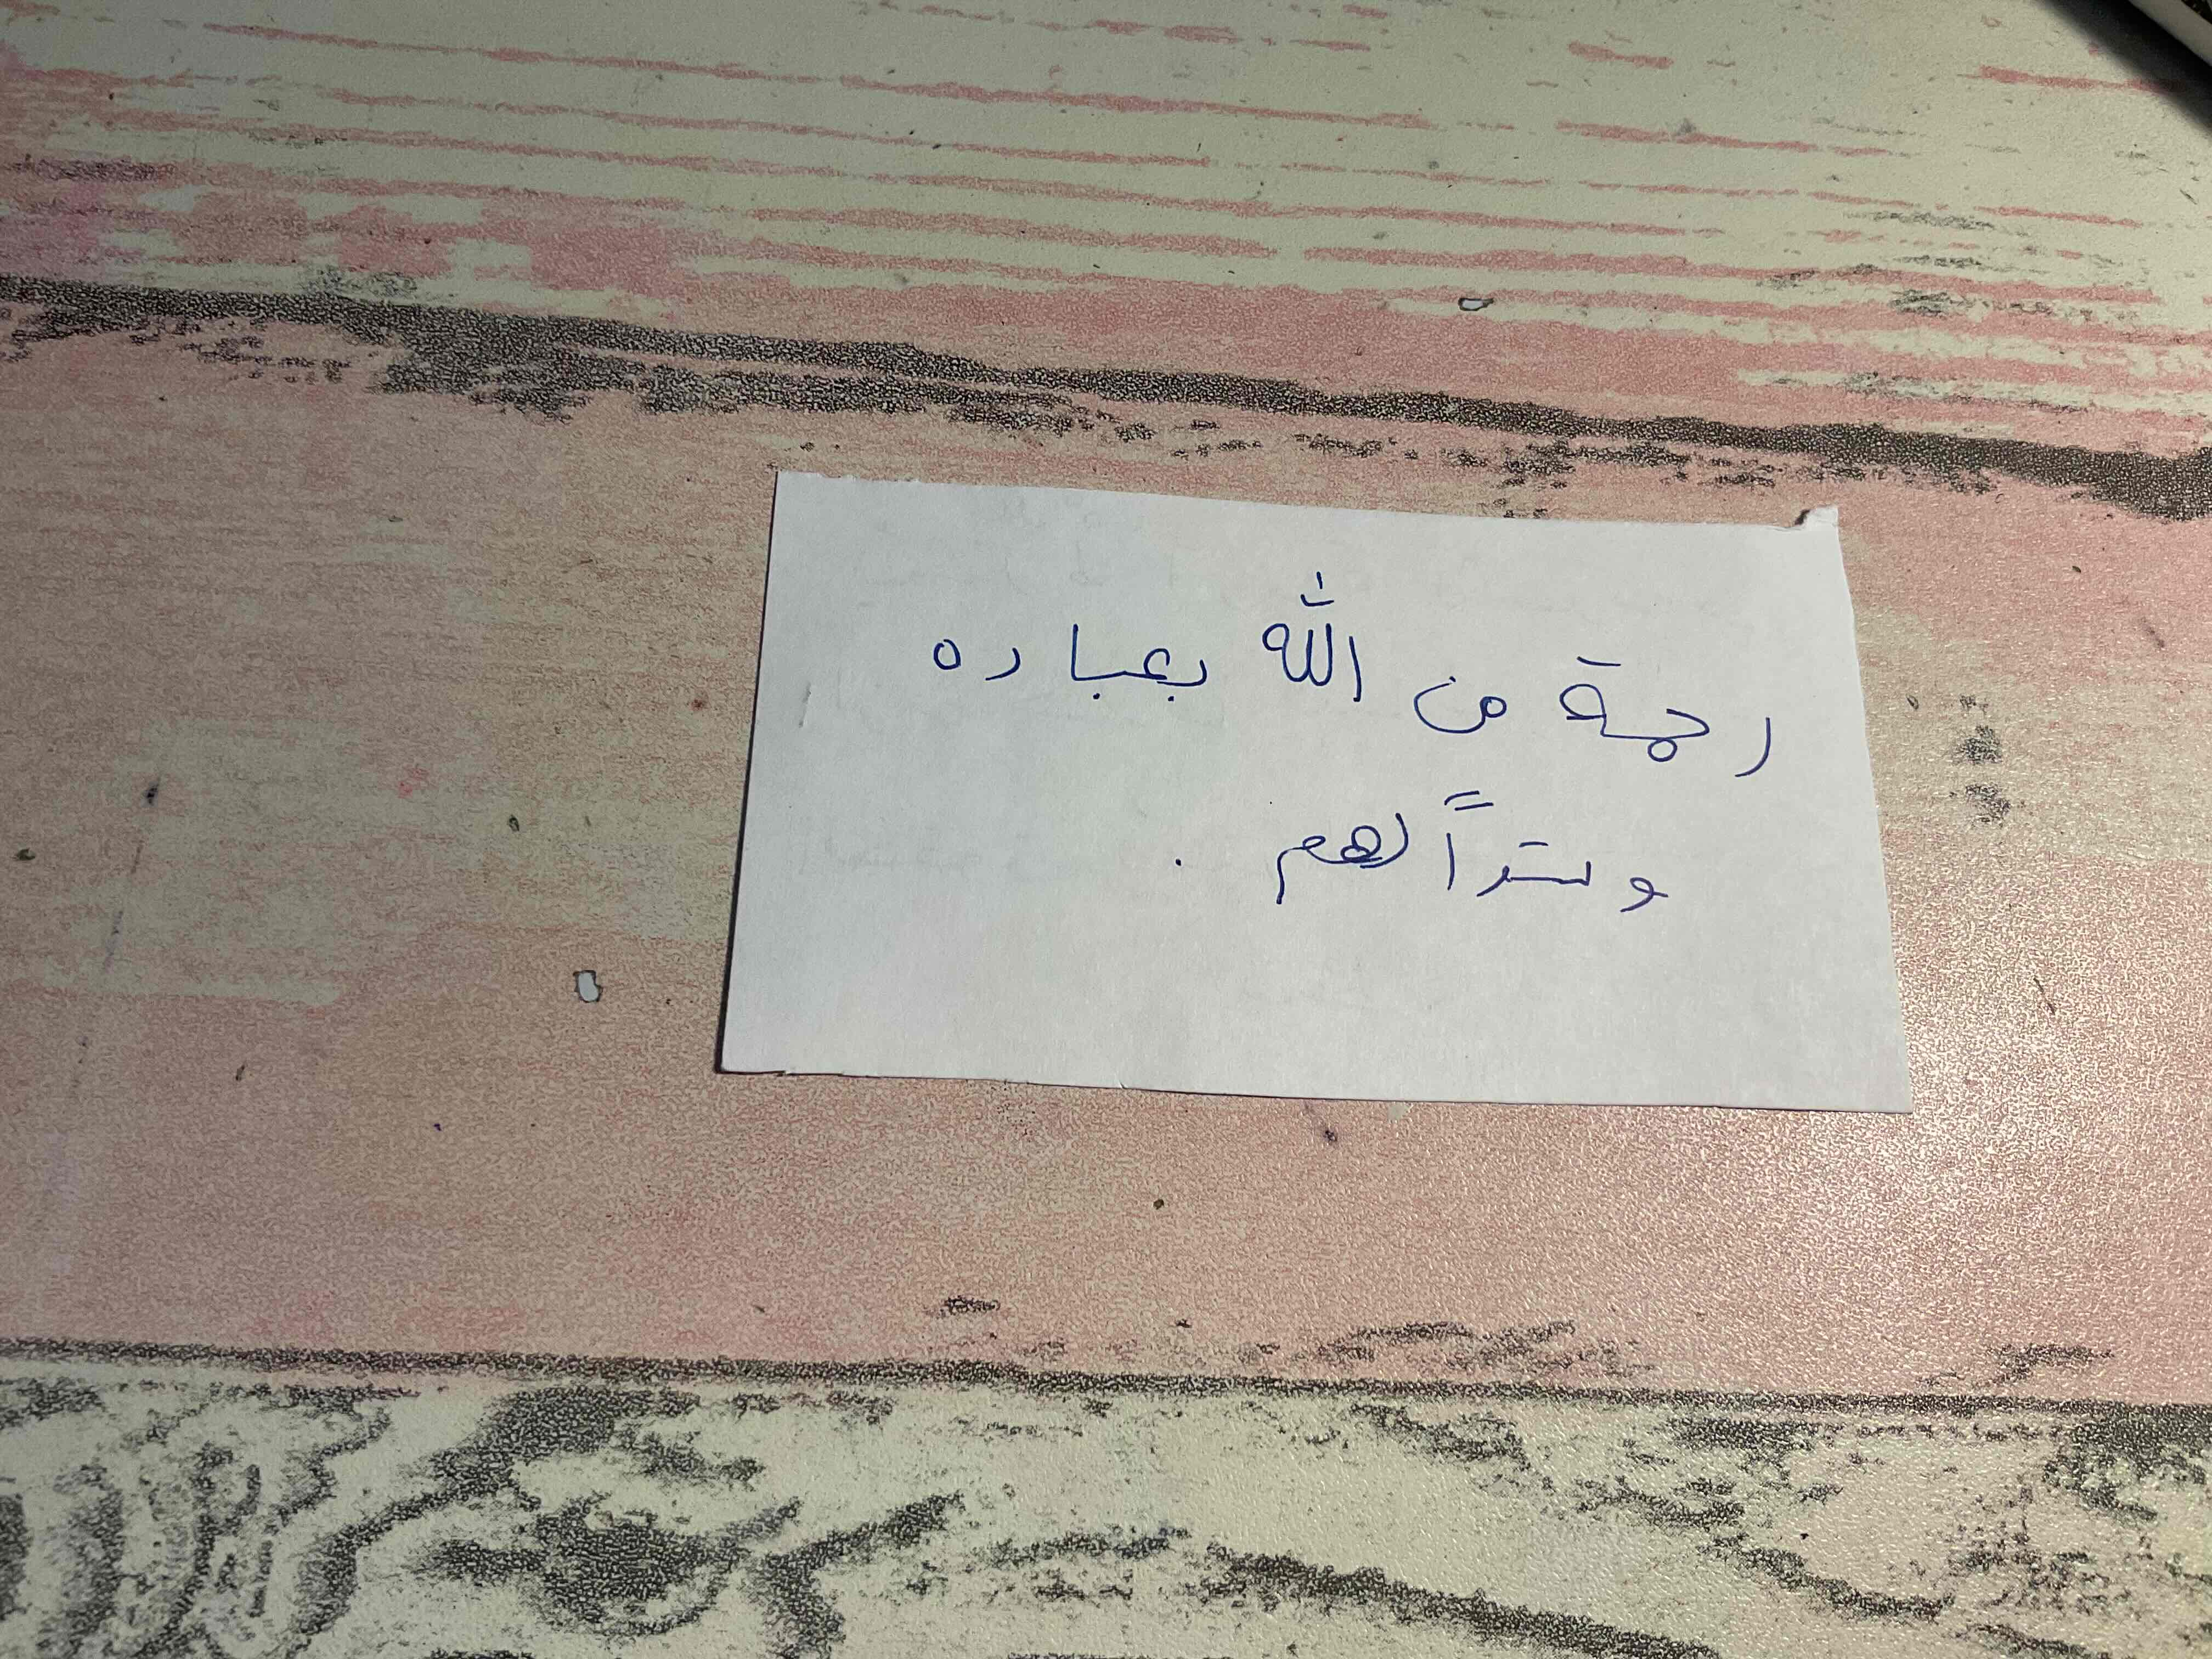 رحمة من الله بعباده
وستراً لهم .